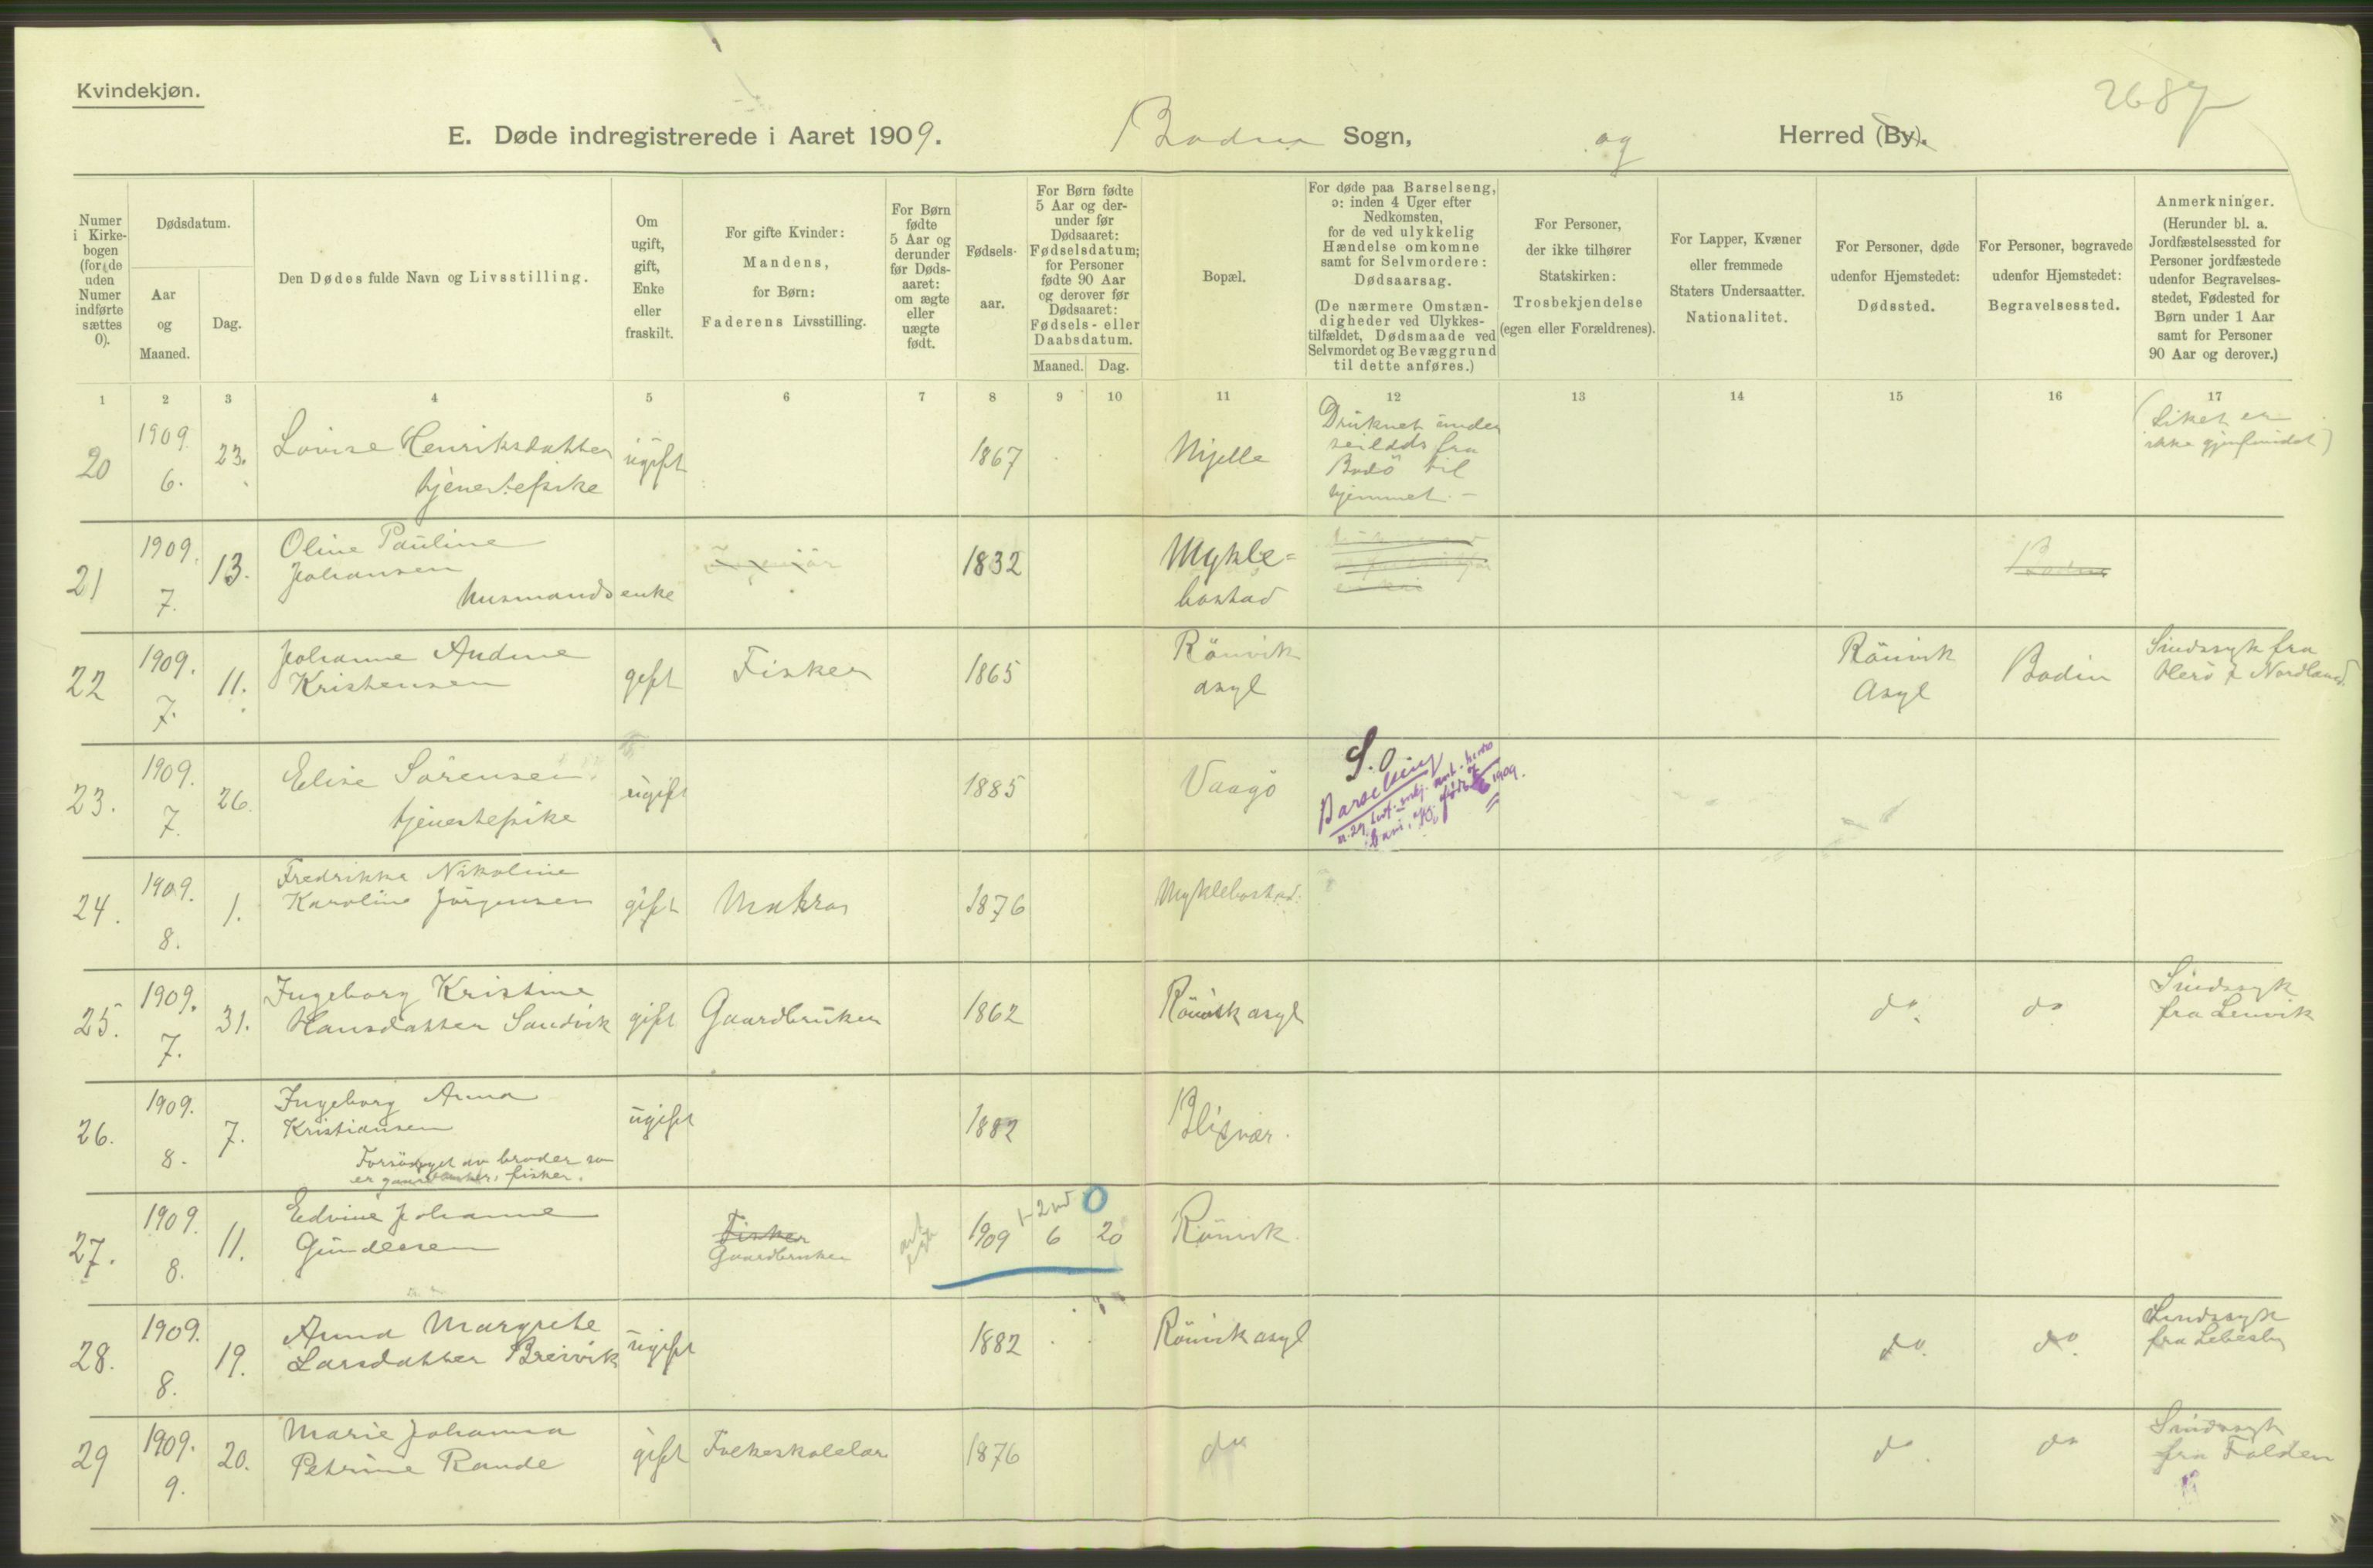 Kvindekjøn.
2687
E. Døde indregistrerede i Aaret 1909. Bodin Sogn, og Herred (By).
Numer i Kirkebogen (for de uden Numer indførte sættes 0).
Dødsdatum.
Aar og Maaned.
Dag.
Den Dødes fulde Navn og Livsstilling.
Om ugift, gift, Enke eller fraskilt.
For gifte Kvinder: Mandens, for Børn: Faderens Livsstilling.
For Børn fødte 5 Aar og derunder før Dødsaaret: om ægte eller uægte født.
Fødselsaar.
For Børn fødte 5 Aar og derunder før Dødsaaret: Fødselsdatum; for Personer fødte 90 Aar og derover før Dødsaaret: Fødsels- eller Daabsdatum.
Maaned. Dag.
Bopæl.
For døde paa Barselseng, ɔ: inden 4 Uger efter Nedkomsten, for de ved ulykkelig Hændelse omkomne samt for Selvmordere: Dødsaarsag.
(De nærmere Omstændigheder ved Ulykkestilfældet, Dødsmaade ved Selvmordet og Bevæggrund til dette anføres.)
For Personer, der ikke tilhører Statskirken: Trosbekjendelse (egen eller Forældrenes).
For Lapper, Kvæner eller fremmede Staters Undersaatter. Nationalitet.
For Personer, døde udenfor Hjemstedet: Dødssted.
For Personer, begravede udenfor Hjemstedet: Begravelsessted.
Anmerkninger.
(Herunder bl. a. Jordfæstelsessted for Personer jordfæstede udenfor Begravelsesstedet, Fødested for Børn under 1 Aar samt for Personer 90 Aar og derover.)
1 2 3 4 5 6 7 8 9 10 11 12 13 14 15 16 17
20 1909 6. 23. Lovise Henriksdatter tjenestepike ugift 1867 Mjelle Druknet under seilads fra Bodö til hjemmet. – (Liket er ikke gjenfundet)
21 1909. 7. 13. Oline Pauline Johansen husmandsenke 1832 Myklebostad Bodin
22 1909. 7. 11. Johanne Andrine Kristensen gift Fisker 1865 Rönvik asyl Rönvik Asyl Bodin Sindssyk fra Herö i Nordland.
23. 1909. 7. 26. Elise Sørensen tjenestepike ugift 1885 Vaagö S.O Barselseng 1909.
24. 1909. 8. 1. Fredrikke Nikoline Karoline Jörgensen gift Matros 1876 Myklebostad.
25. 1909. 7. 31. Ingeborg Kristine Hansdatter Sandvik gift Gaardbruker 1862 Rönvik asyl do. do Sindssyk fra Lenvik
26. 1909. 8. 7. Ingeborg Anna Kristiansen Forsörget av broder som er gaardbruker, fisker. ugift 1882 Blixvær.
27. 1909. 8. 11. Edvine Johanne Gundersen Fisker Gaardbruker 1909 6 20 1-2 md 0 Rönvik.
28. 1909. 8. 19. Anna Margrete Larsdatter Breivik ugift 1882 Rönvik asyl do. do. Sindssyk fra Lebesby
29 1909. 9. 20. Marie Johanna Petrine Rande gift Folkeskolelær 1876 do do. do Sindssyk fra Folden